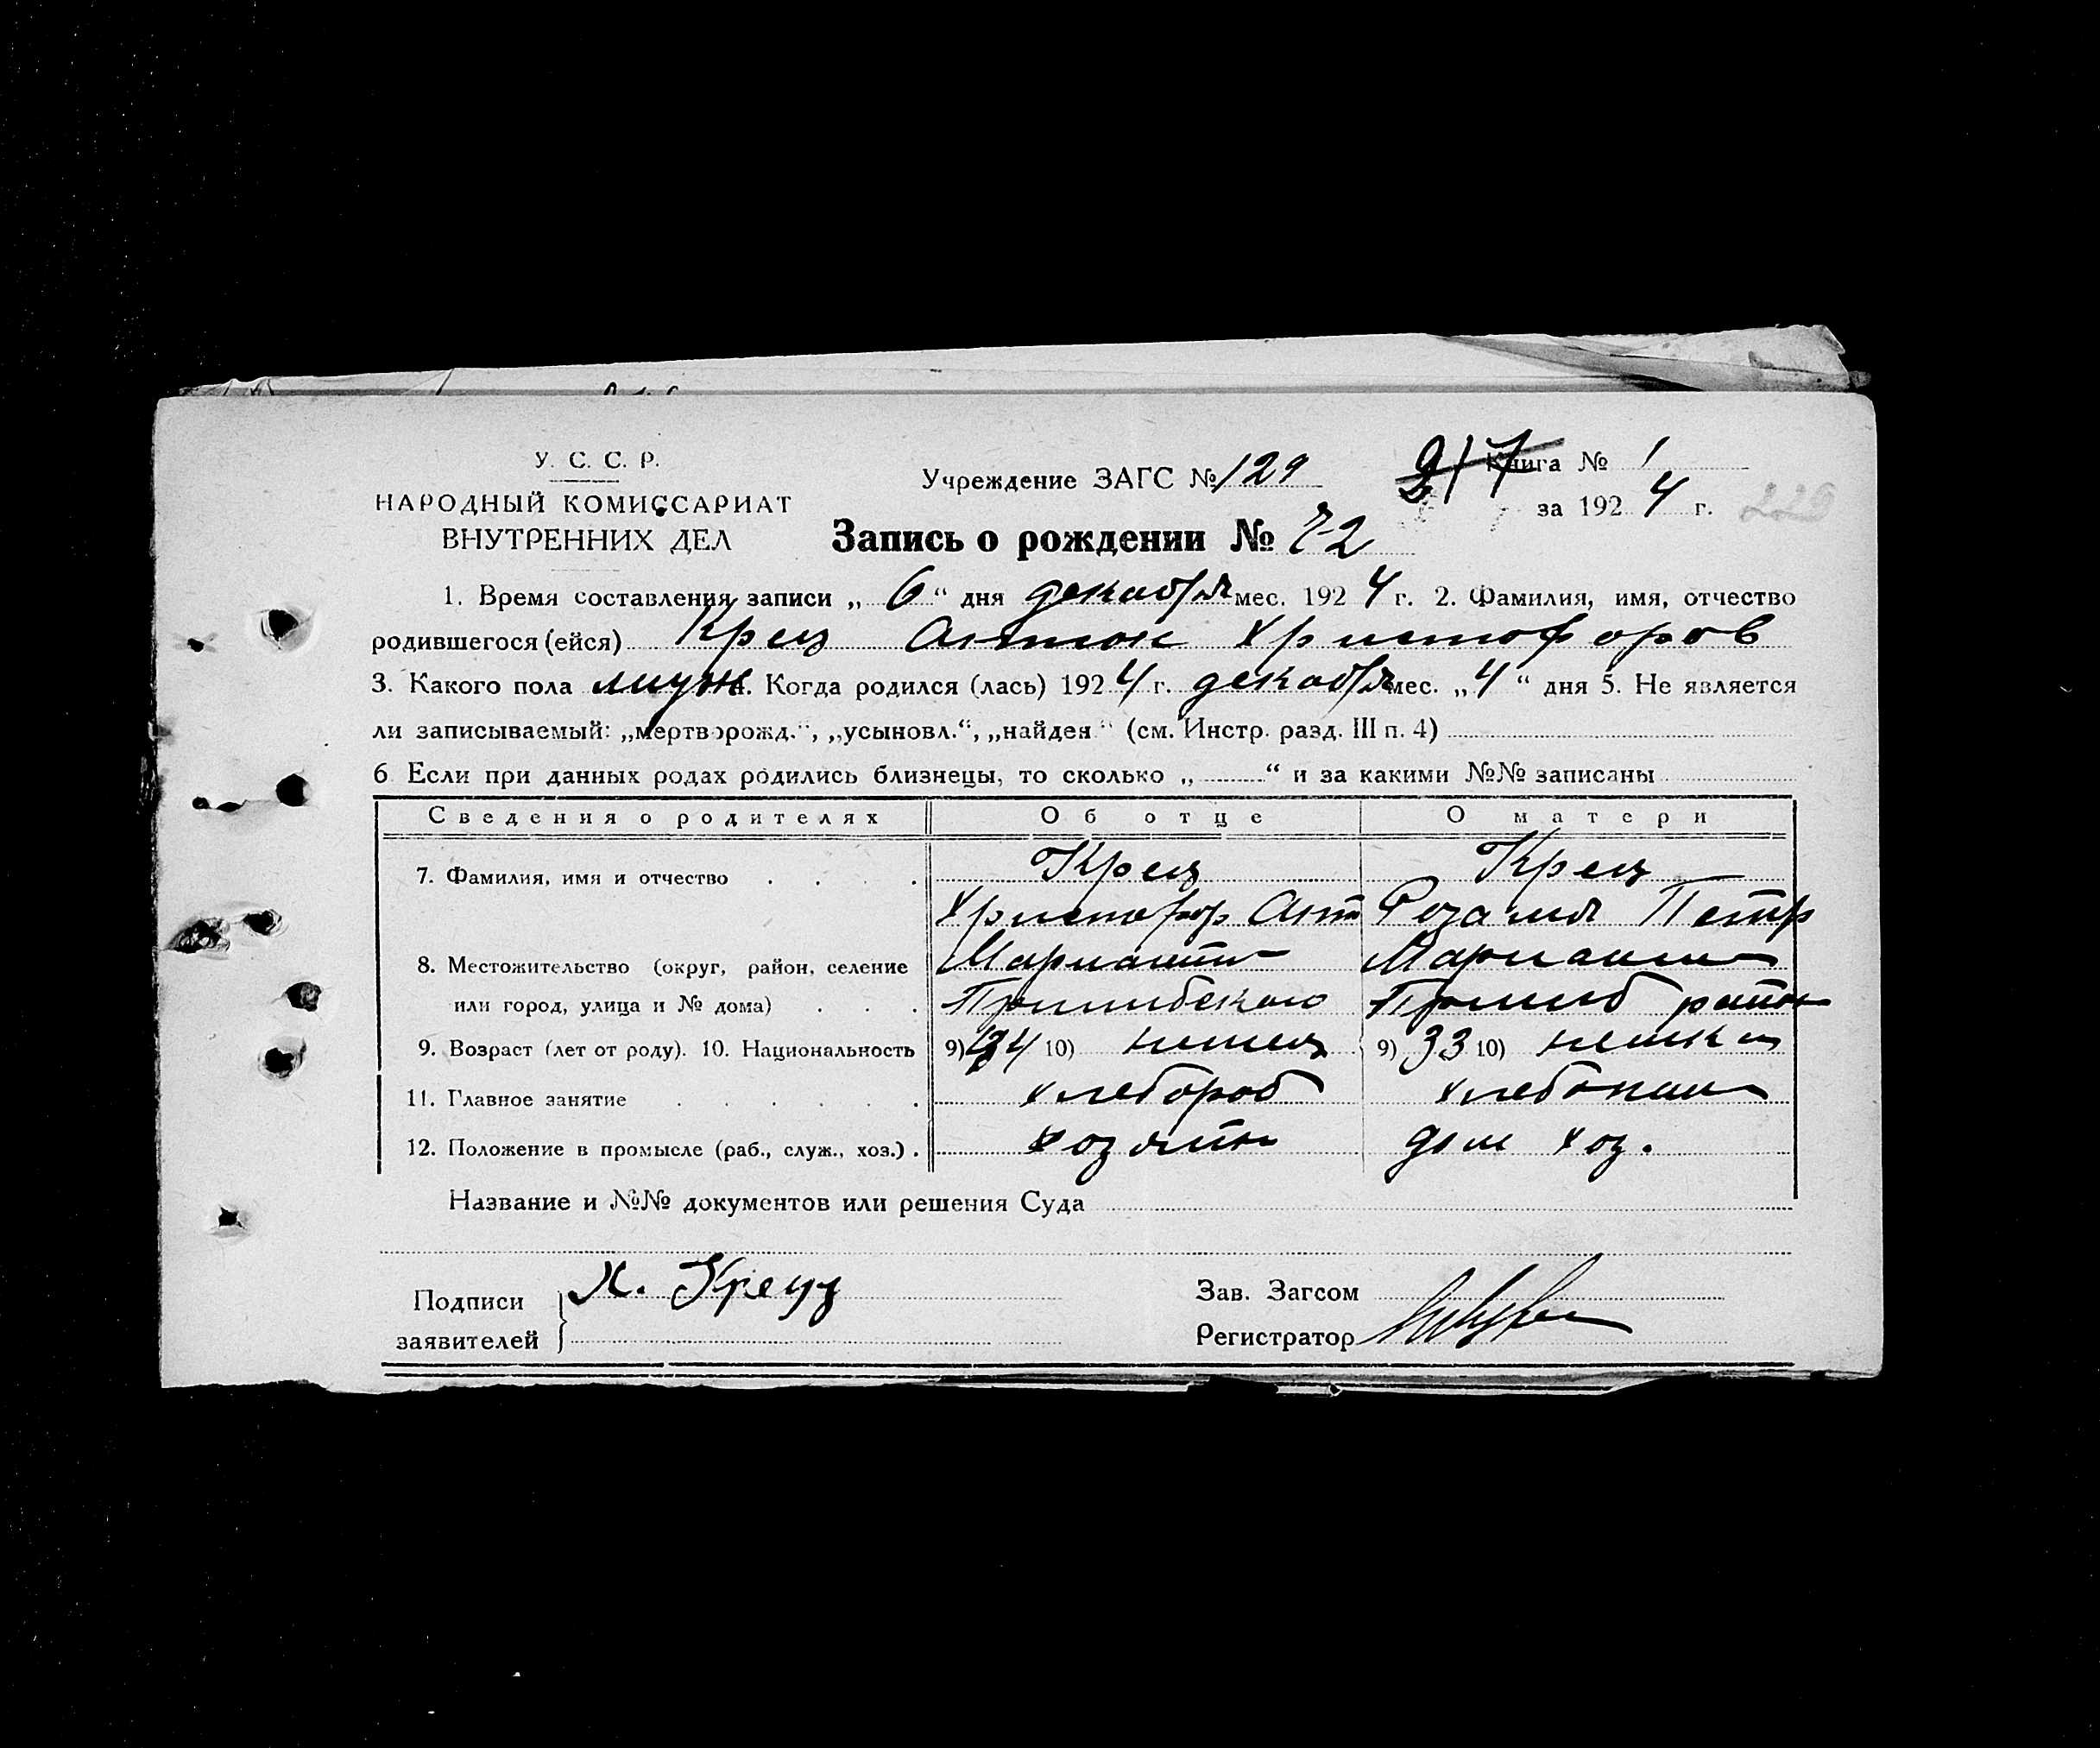 У. С. С. Р.
НАРОДНЫЙ КОМИССАРИАТ
ВНУТРЕННИХ ДЕЛ
Учреждение ЗАГС № 129
217 Книга № 1
за 1924 г.
Запись о рождении № 72
1. Время составления записи „6“ дня декабря мес. 1924 г. 2. Фамилия, имя, отчество
родившегося (ейся) Крец Антон Христофоров
3. Какого пола муж 4. Когда родился (лась) 1924 г. декабря мес. „4“ дня 5. Не является
ли записываемый: „мертворожд.“, „усыновл.“, „найден“ (см. Инстр. разд. III п. 4)
6 Если при данных родах родились близнецы, то сколько „ “ и за какими №№ записаны
Сведения о родителях Об отце О матери
7. Фамилия, имя и отчество Крец Крец
Христофор Ант Розалия Петр
8. Местожительство (округ, район, селение Мариаг
или город, улица и № дома) Пришибского Пришиб район
9. Возраст (лет от роду). 10. Национальность 9) 34 10) немец 9) 33 10) немка
11. Главное занятие хлебороб хлебопаш
12. Положение в промысле (раб., служ., хоз.) хозяин дом хоз.
Название и №№ документов или решения Суда
Подписи Х. Крец
заявителей
Зав. Загсом
Регистратор